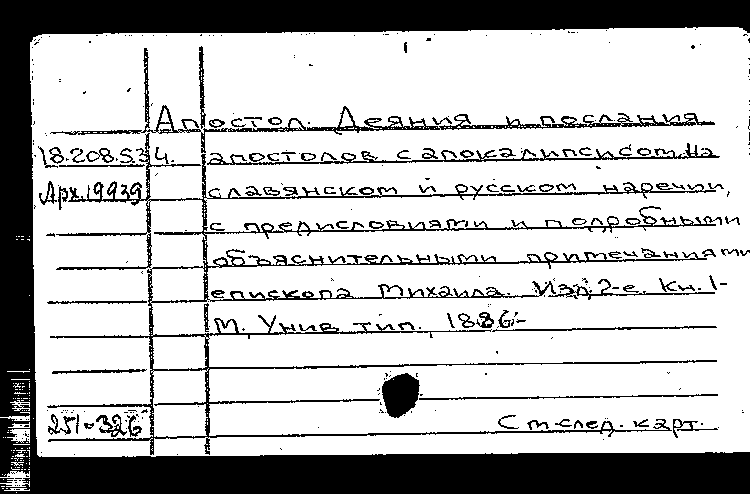 Апостол. Деяния и послания
18.208.5.34. апостолов с апокалипсисом. На
Арх.19939 славянском и русском наречии,
с предисловиями и подробными
объяснительными примечаниями
епископа Михаила. Изд. 2-е. Кн. 1-
М., Унив. тип., 1886.-
251-326 См. след. карт.